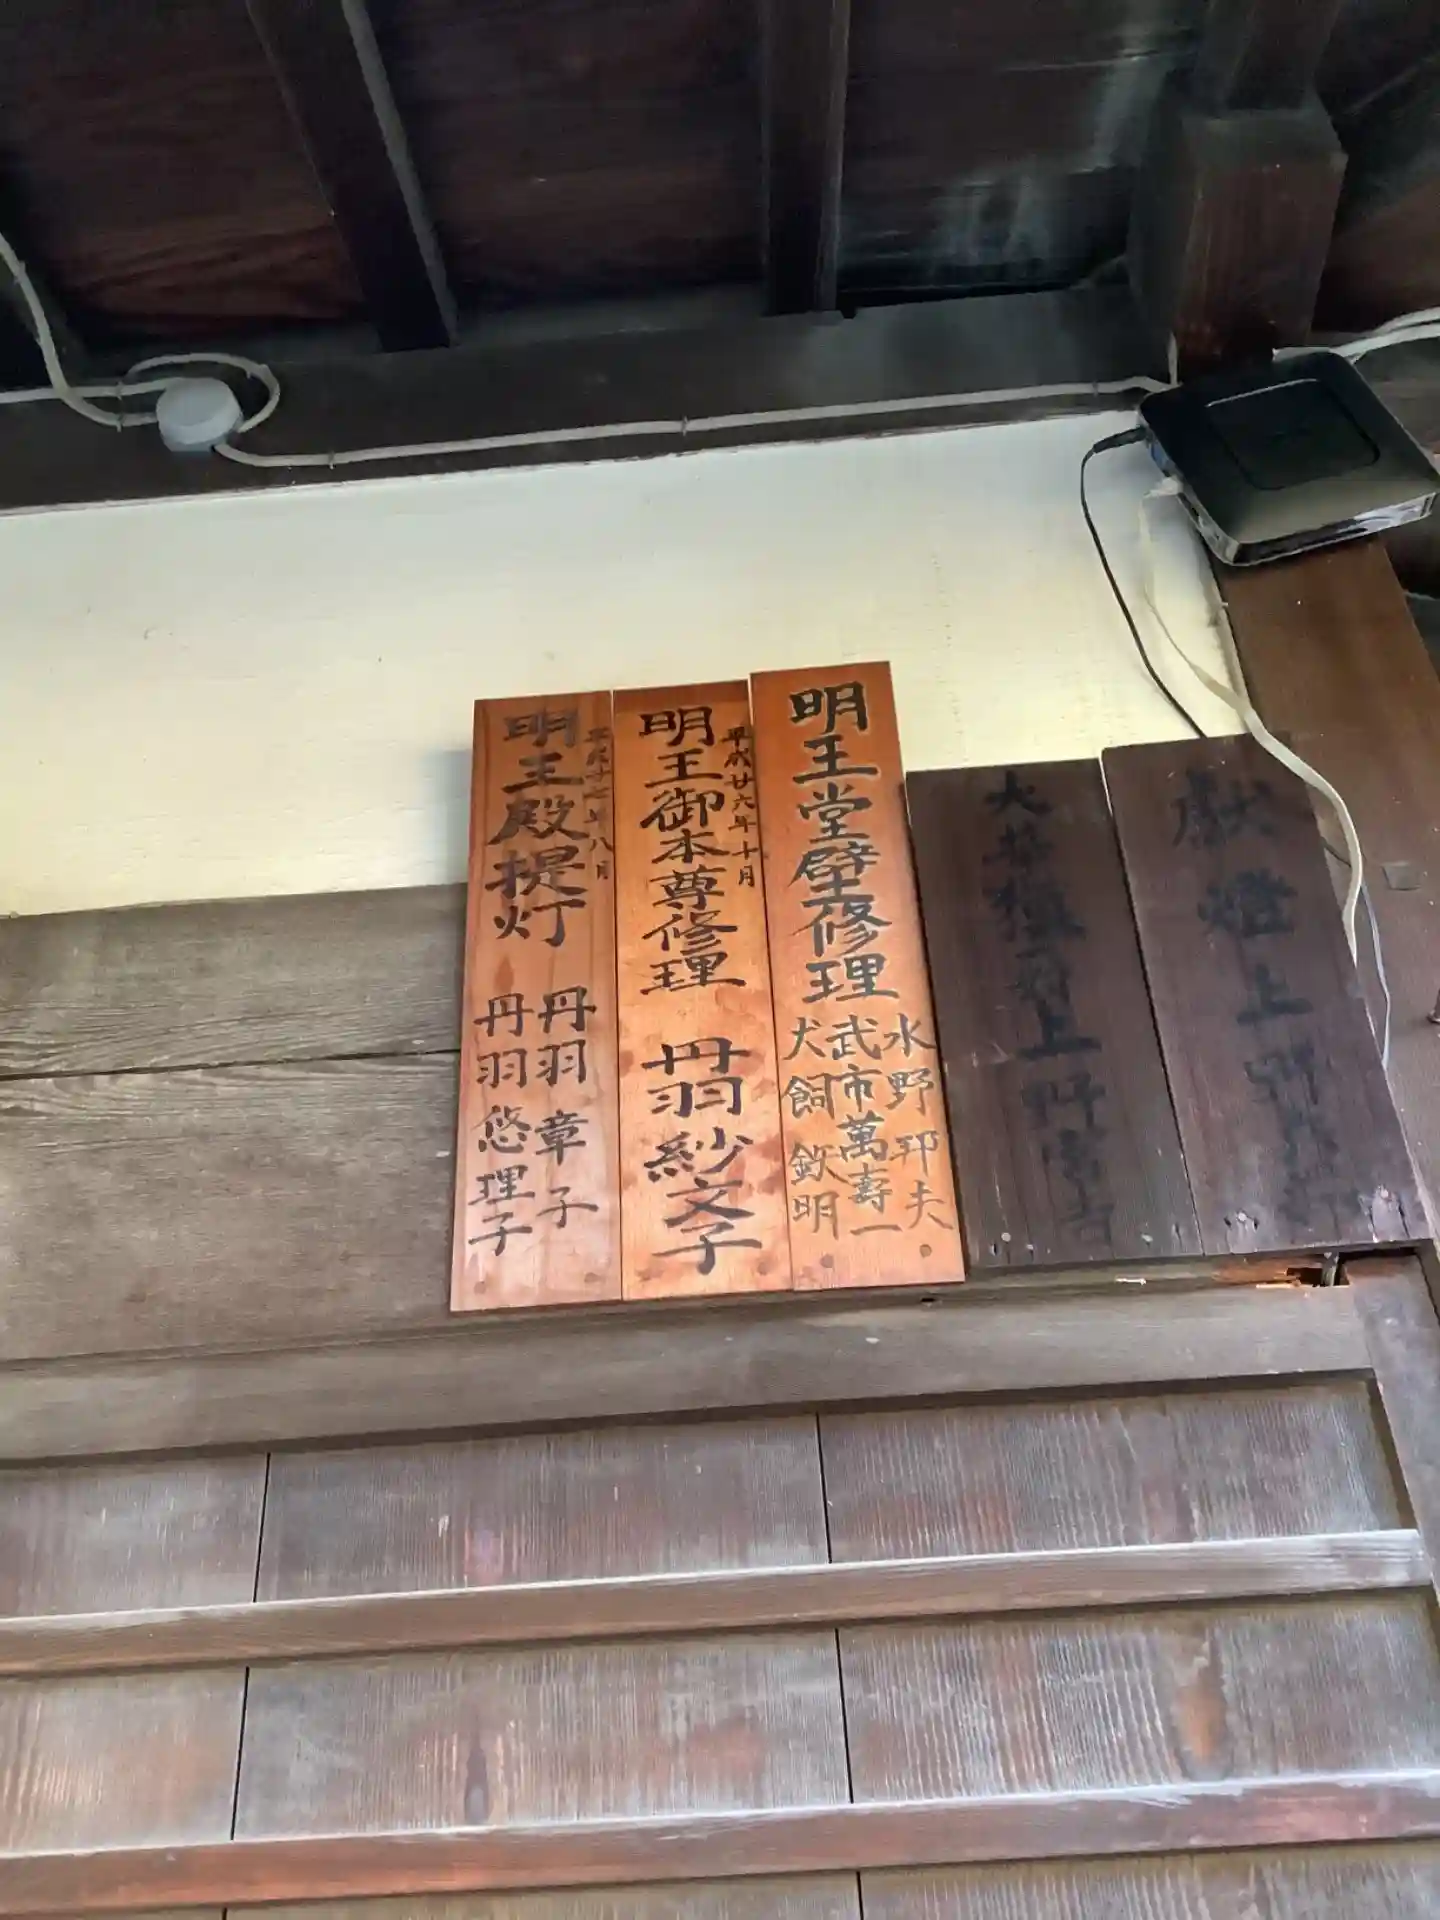 獻燈上野
上野
明王堂壁修理
水野邦夫
武市萬壽一
犬飼欽明
平成廿六年十月
明王御本尊修理
丹羽紗文子
平成十七年八月
明王殿提灯
丹羽章子
丹羽悠理子